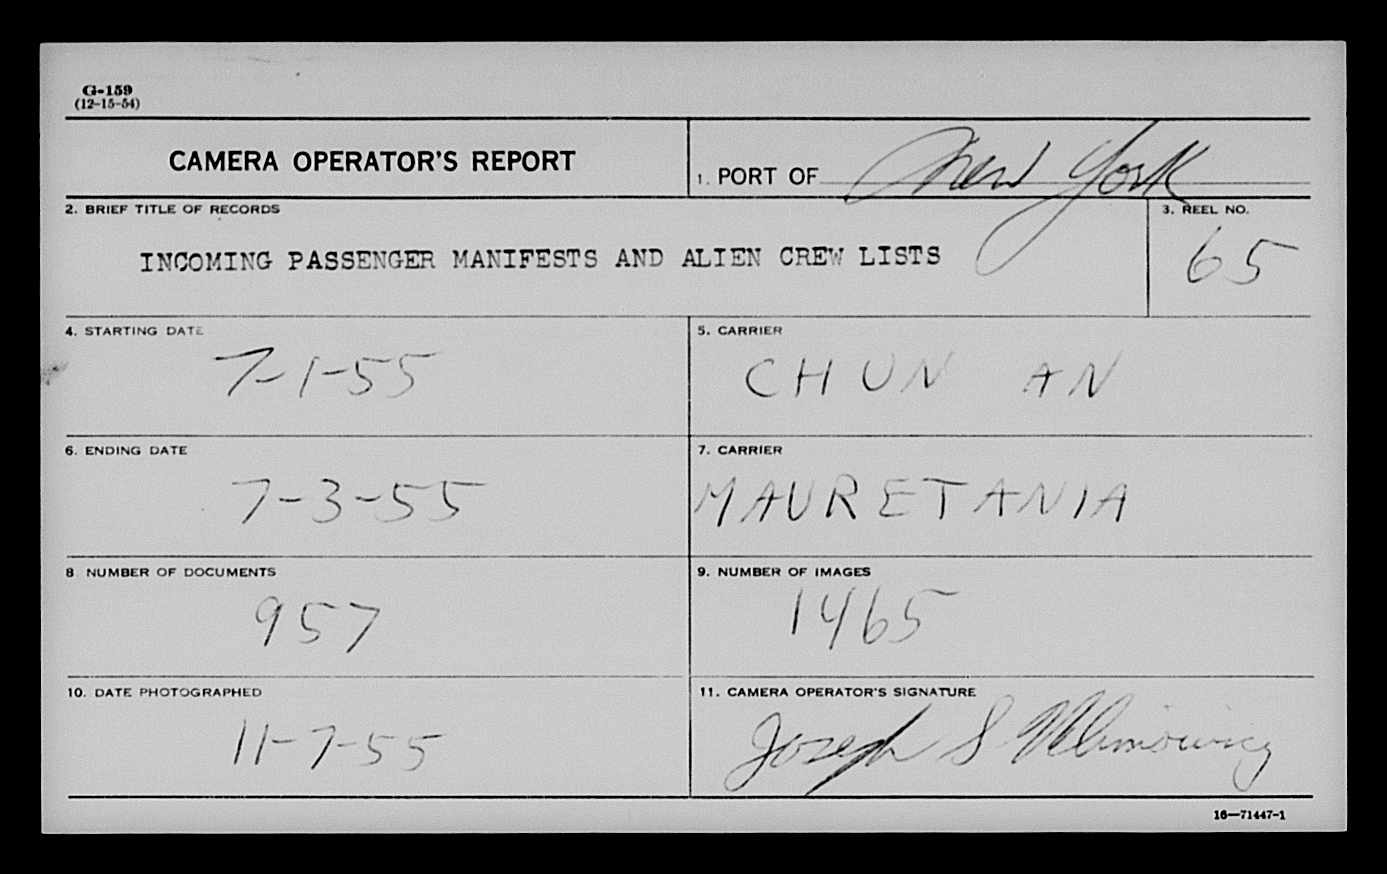 G-159
(12-15-54)
CAMERA OPERATOR'S REPORT
1. PORT OF New York
2. BRIEF TITLE OF RECORDS
INCOMING PASSENGER MANIFESTS AND ALIEN CREW LISTS
3. REEL NO.
65
4. STARTING DATE
7-1-55
5. CARRIER
CHUN AN
6. ENDING DATE
7-3-55
7. CARRIER
MAURETANIA
8 NUMBER OF DOCUMENTS
957
9. NUMBER OF IMAGES
1465
10. DATE PHOTOGRAPHED
11-7-55
11. CAMERA OPERATOR'S SIGNATURE
Joseph S
16—71447-1